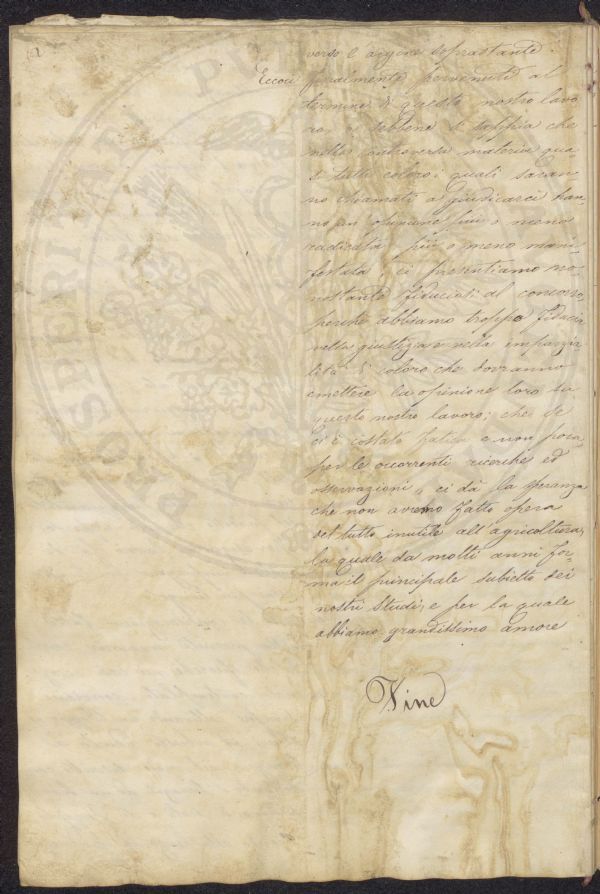 verso l'argine soprastante.
Eccoci finalmente pervenuti al
termine di questo nostro lavo-
ro, e sebbene si sappia che
nella controversa materia qua-
si tutti coloro i quali saran-
no chiamati a giudicarci han-
no un opinione più o meno
radicata più o meno mani-
festata, ci presentiamo no-
nostante fiduciati al concorso,
perché abbiamo troppa fiducia
nella giustizia e nella imparzia-
lità di coloro che dovranno
emettere la opinione loro su
questo nostro lavoro; che se
ci è costato fatica e non poca
per le occorrenti ricerche ed
osservazioni, ci dà la speranza
che non avremo fatto opera
del tutto inutile all'agricoltura,
la quale da molti anni for-
ma il principale subietto dei
nostri studi, e per la quale
abbiamo grandissimo amore
Fine
PROSPERITATI PU